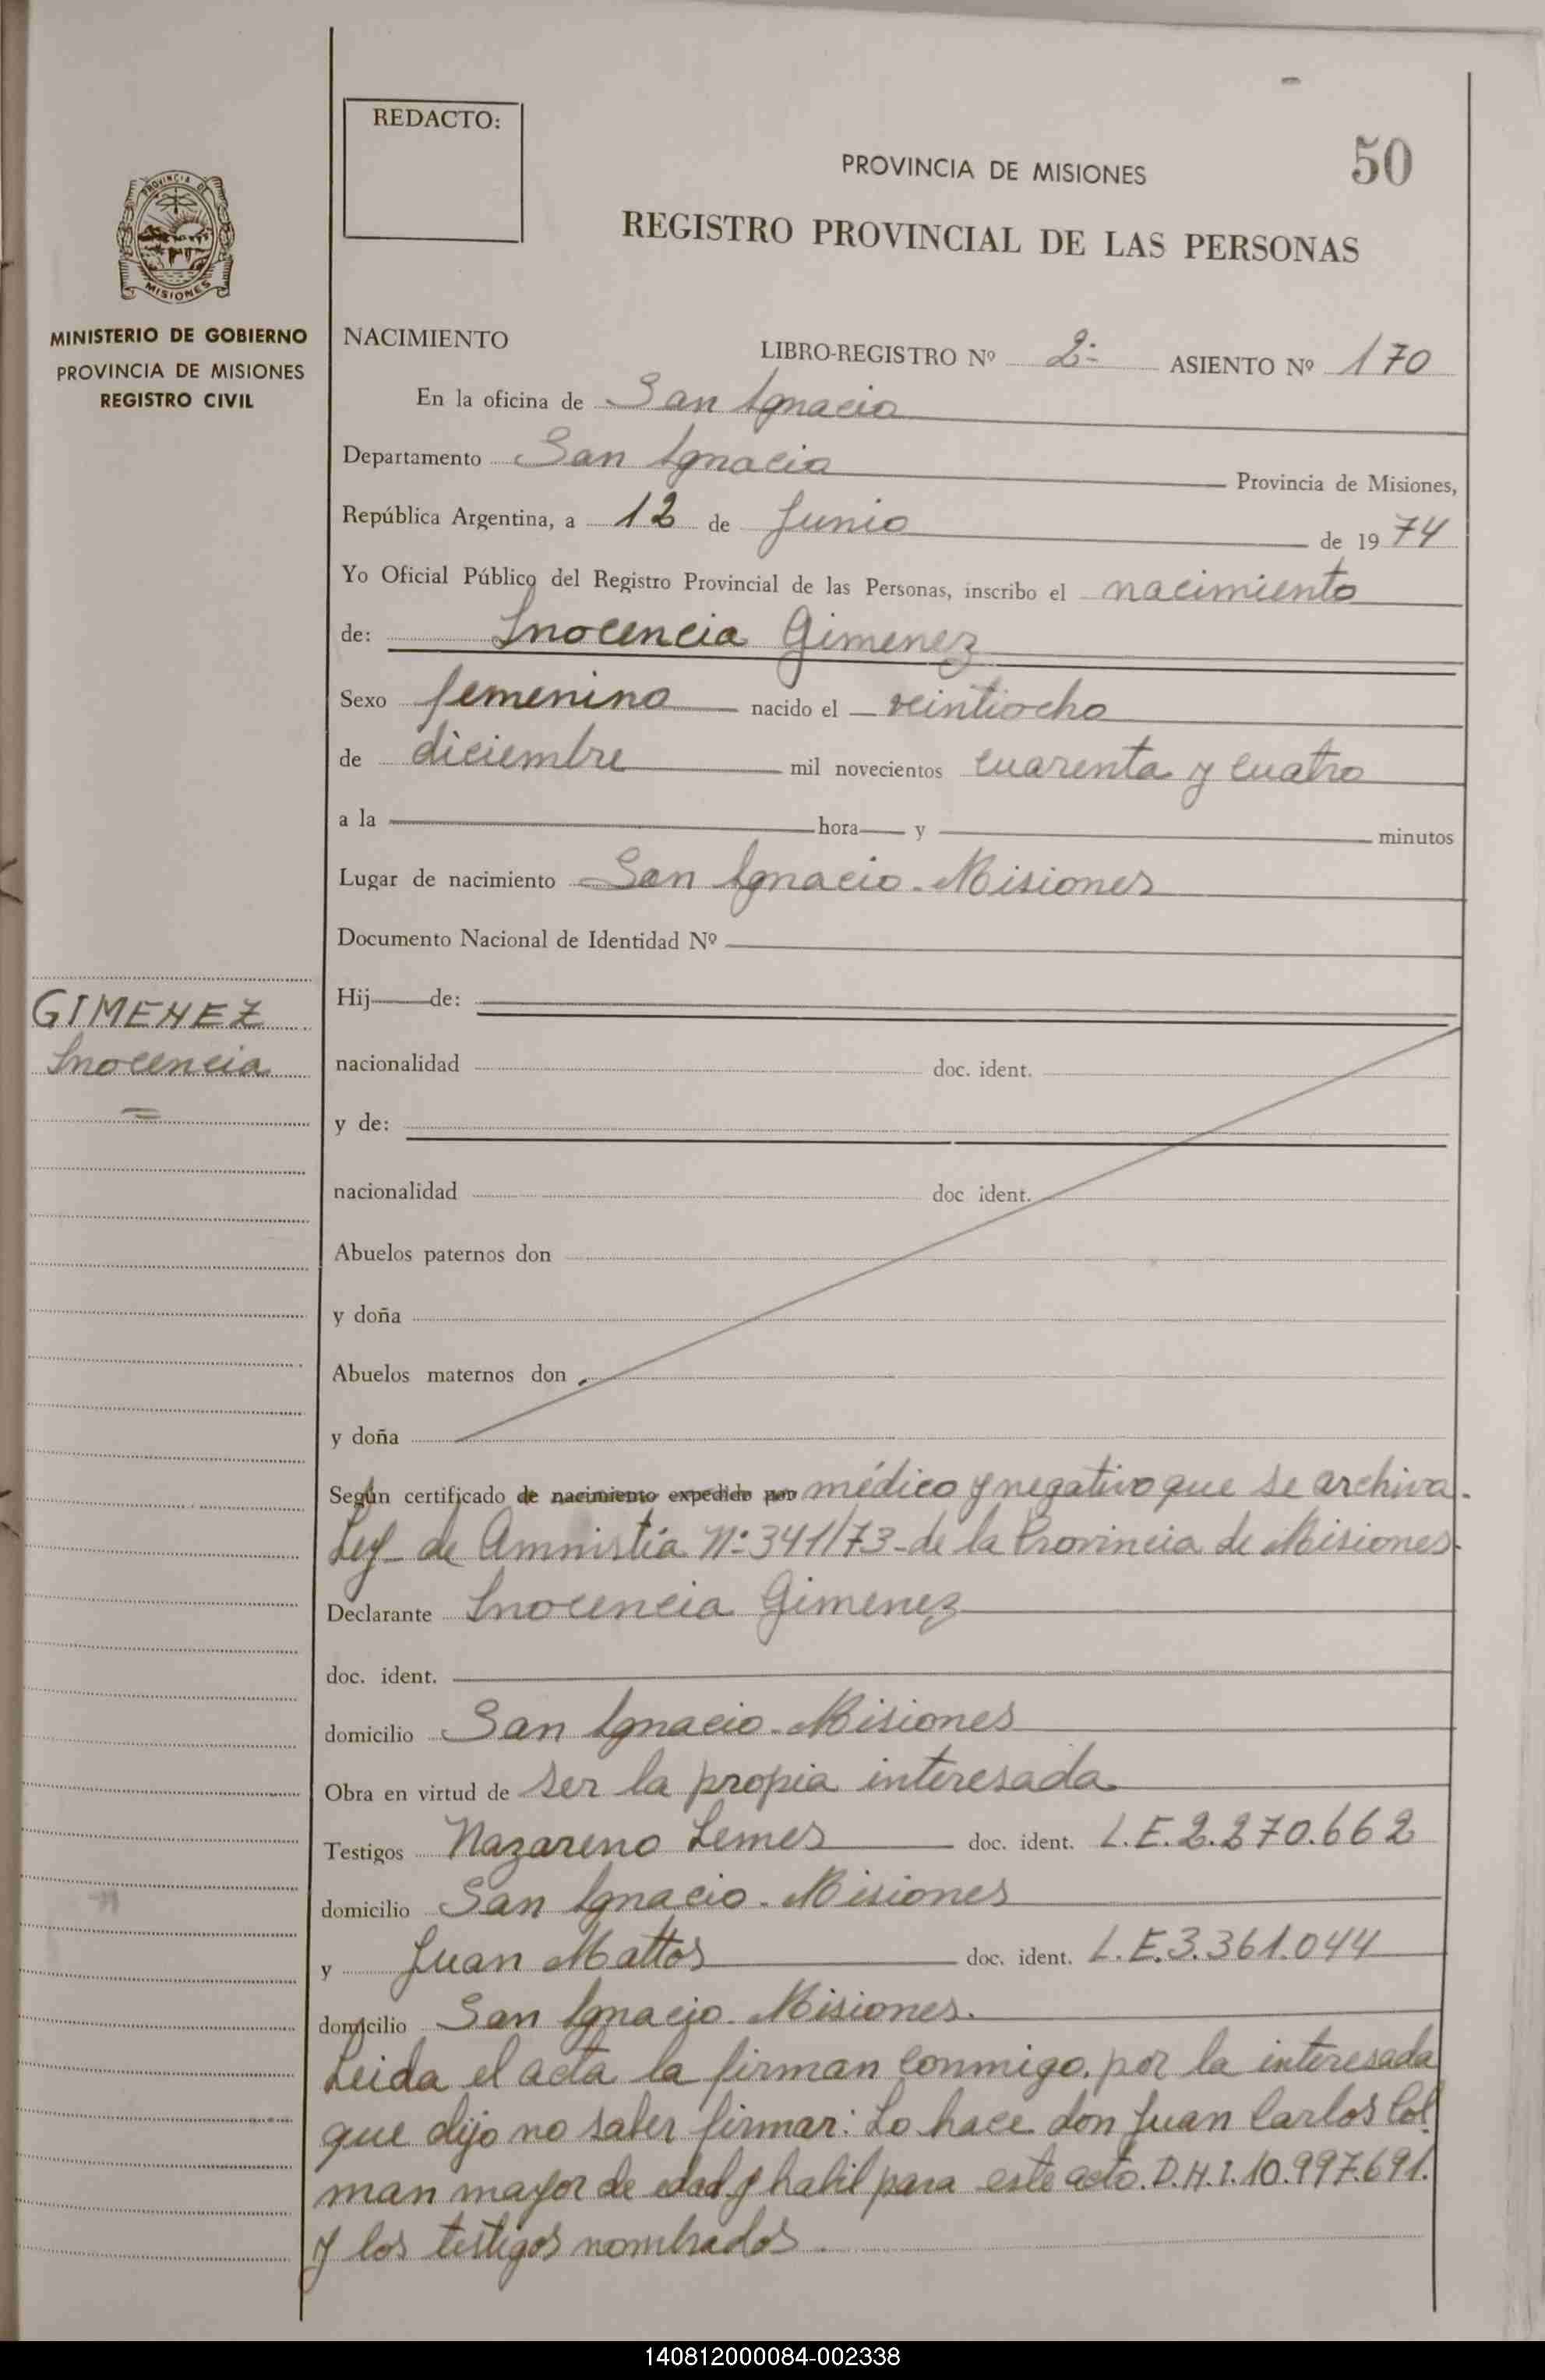 REDACTO:
PROVINCIA DE MISIONES
50
REGISTRO PROVINCIAL DE LAS PERSONAS
PROVINCIA DE
MISIONES
MINISTERIO DE GOBIERNO
PROVINCIA DE MISIONES
REGISTRO CIVIL
NACIMIENTO LIBRO-REGISTRO Nº 2º ASIENTO Nº 170
En la oficina de San Ignacio
Departamento San Ignacio Provincia de Misiones,
República Argentina, a 12 de Junio de 1974
Yo Oficial Público del Registro Provincial de las Personas, inscribo el nacimiento
de: Inocencia Gimenez
Sexo femenino nacido el veintiocho
de diciembre mil novecientos cuarenta y cuatro
a la hora y minutos
Lugar de nacimiento San Ignacio-Misiones
Documento Nacional de Identidad Nº
Hij de:
GIMENEZ
Inocencia
nacionalidad doc. ident.
y de:
nacionalidad doc ident.
Abuelos paternos don
y doña
Abuelos maternos don
y doña
Según certificado de nacimiento expedido por médico y negativo que se archiva.
Ley de Amnistía Nº 341/73-de la Provincia de Misiones.
Declarante Inocencia Gimenez
doc. ident.
domicilio San Ignacio-Misiones
Obra en virtud de ser la propia interesada
Testigos Nazareno Lemes doc. ident. L.E.2.270.662
domicilio San Ignacio-Misiones
y Juan Mattos doc. ident. L.E.3.361.044
domicilio San Ignacio-Misiones.
Leida el acta la firman conmigo, por la interesada
que dijo no saber firmar: Lo hace don Juan Carlos Col
man mayor de edad y habil para este acto. D.N.I. 10.997.691.
y los testigos nombrados.
140812000084-002338